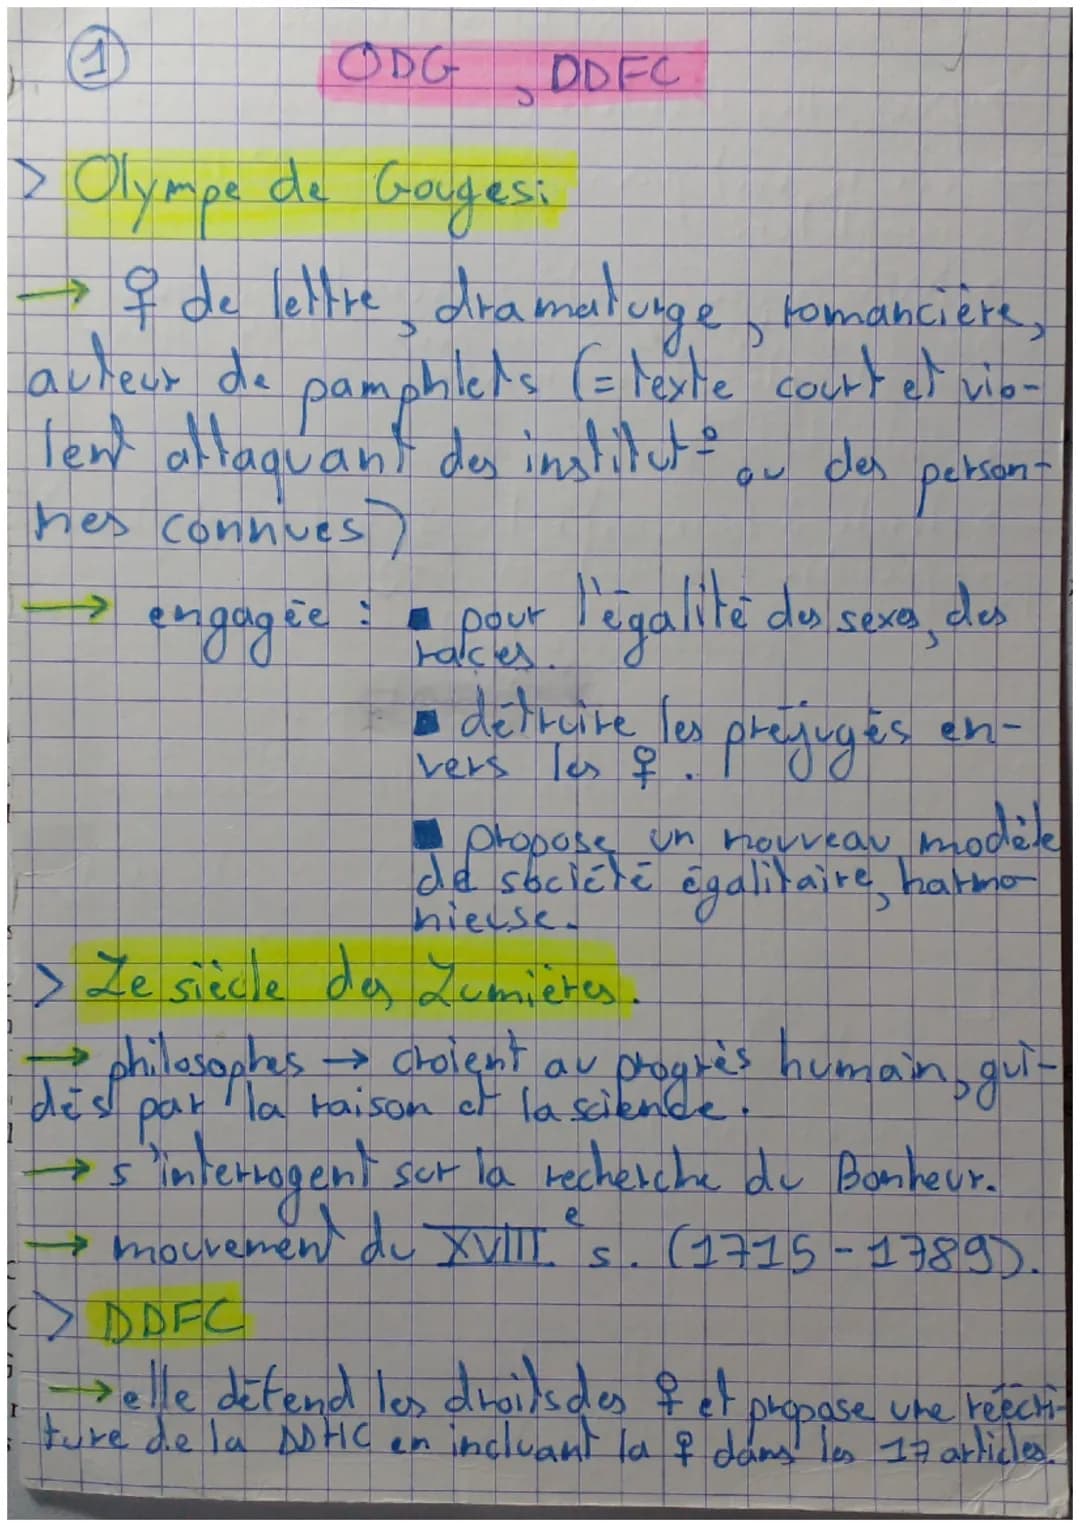 1
ODG, DDFC
> Olympe de Gouges:
→ ♀ de lettre, dramaturge, romancière,
auteur de pamphlets (= texte court et vio-
lent attaquant des institut° ou des person-
nes connues)
→ engagée : ■ pour l'égalité des sexes, des
races.
■ détruire les préjugés en-
vers les ♀.
■ propose un nouveau modèle
de société égalitaire, harmo-
nieuse.
> Le siècle des Lumières.
→ philosophes → croient au progrès humain, gui-
dés par la raison et la science.
→ s'interrogent sur la recherche du Bonheur.
→ mouvement du XVIIIe s. (1715-1789).
> DDFC
→ elle défend les droits des ♀ et propose une réécri-
ture de la DDHC en incluant la ♀ dans les 17 articles.